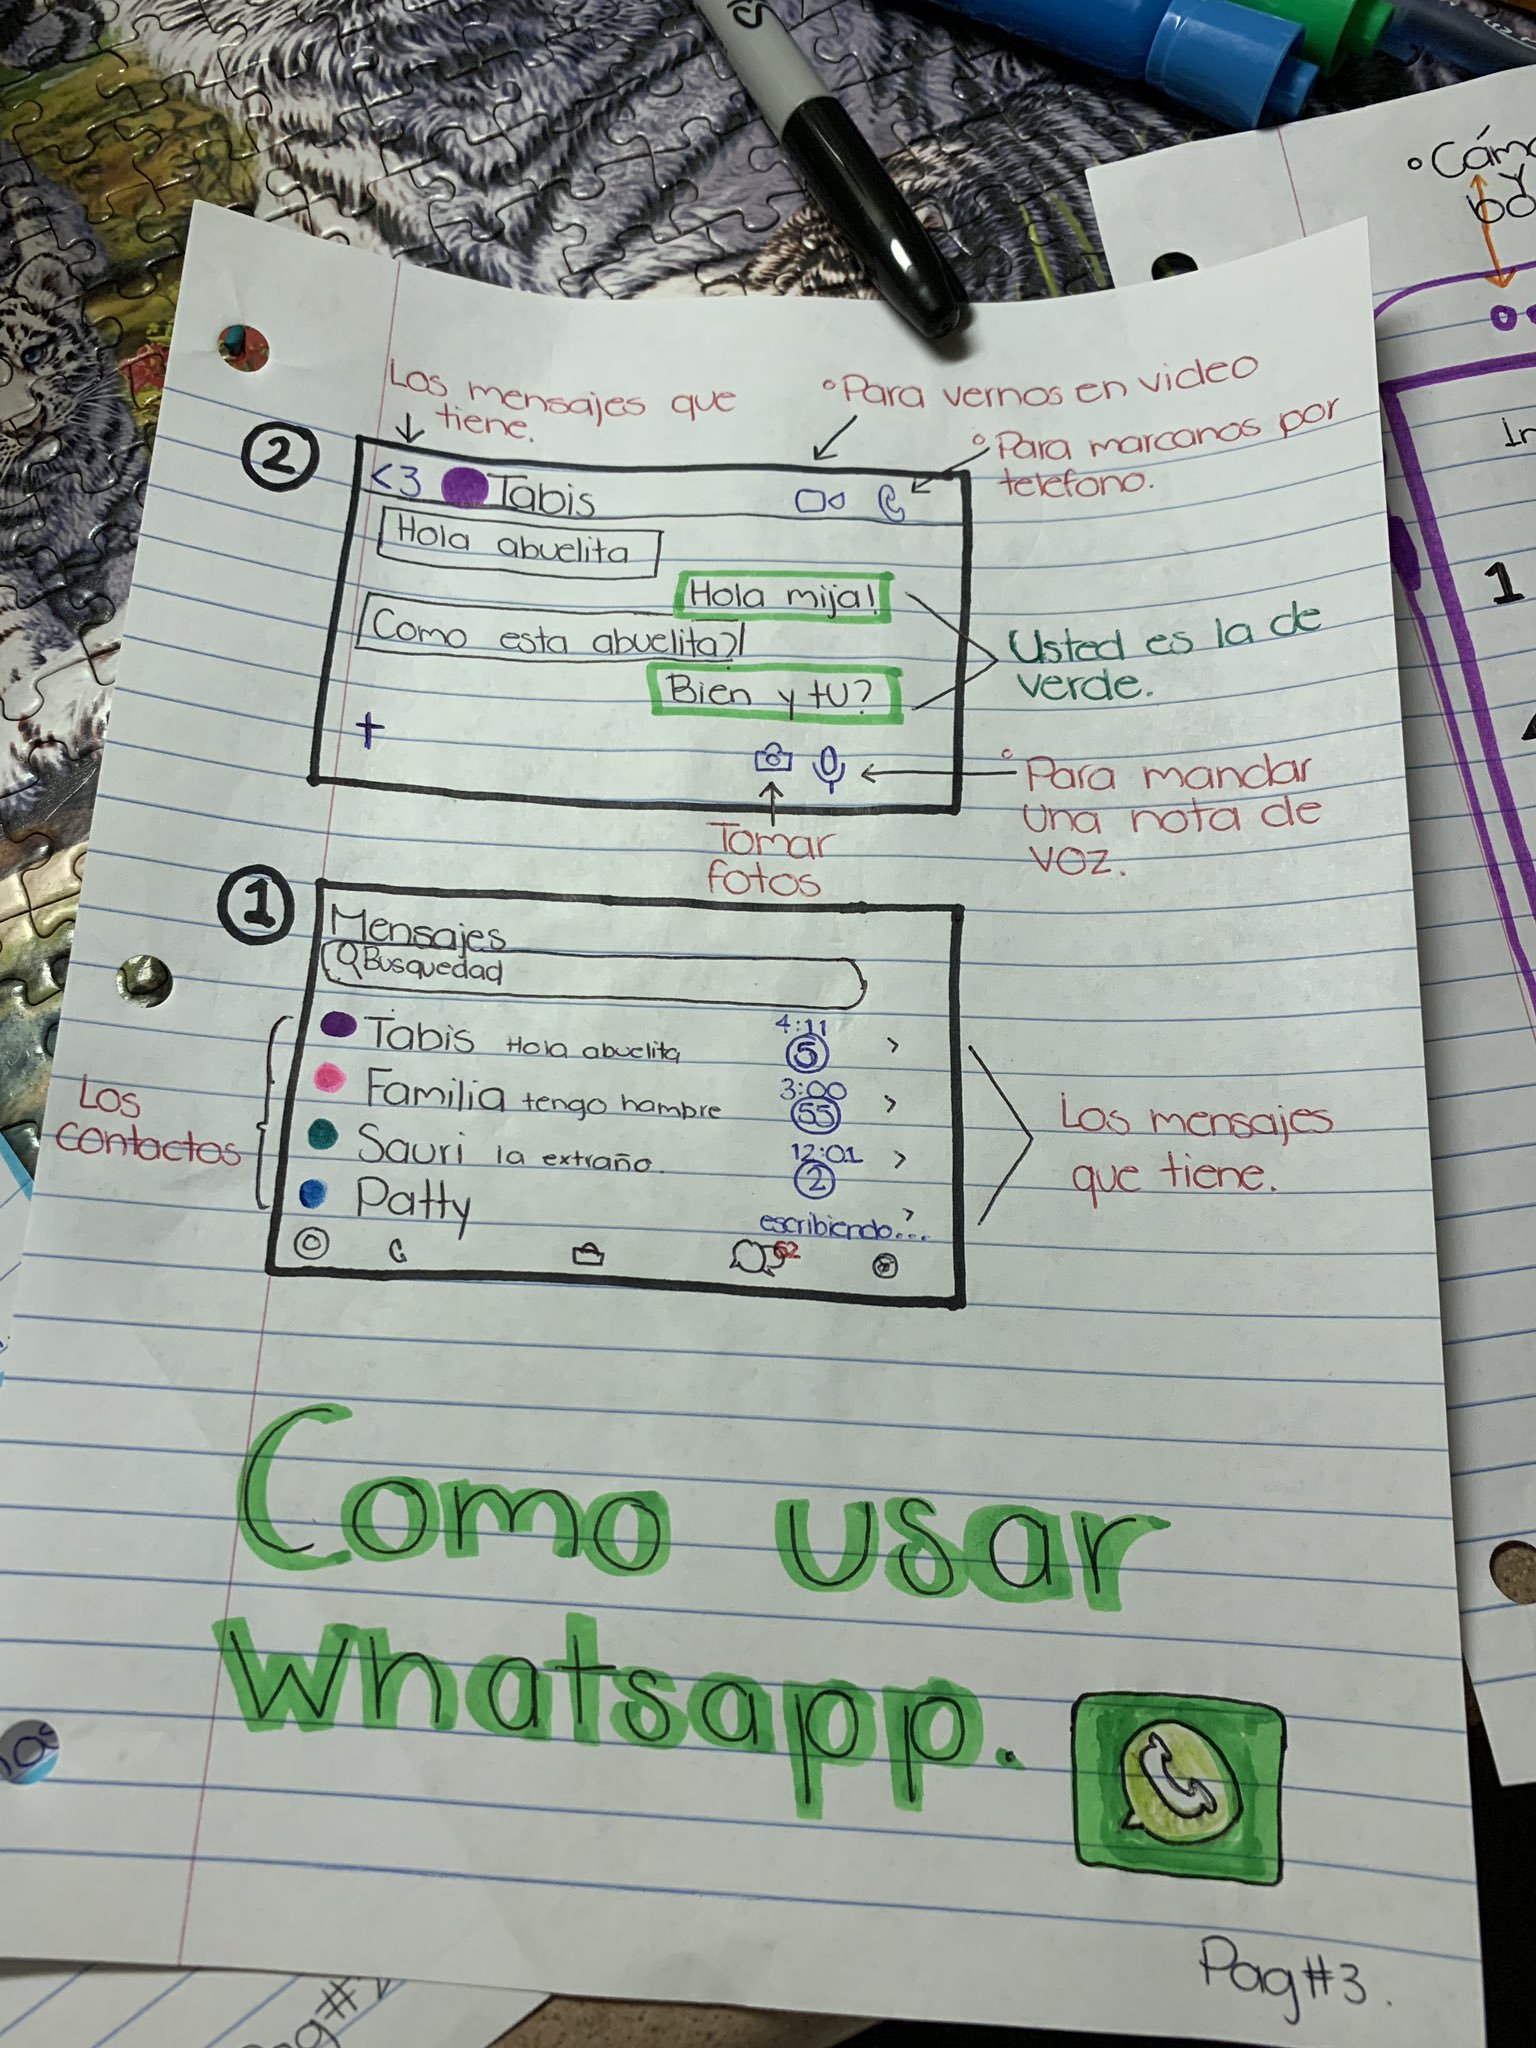 Los mensajes que
tiene.
Para vernos en video
Para marcanos por
telefono.
2
<3 Tabis
Hola abuelita
Hola mija!
Como esta abuelita?
Bien y tu?
+
Usted es la de
verde.
Para mandar
una nota de
voz.
Tomar
fotos
1
Mensajes
Busquedad
Tabis Hola abuelita 4:11 5 >
Familia tengo hambre 3:00 55 >
Sauri la extraño. 12:01 2 >
Patty escribiendo... >
62
Los
contactos
Los mensajes
que tiene.
Como usar
Whatsapp.
Pag#3.
1